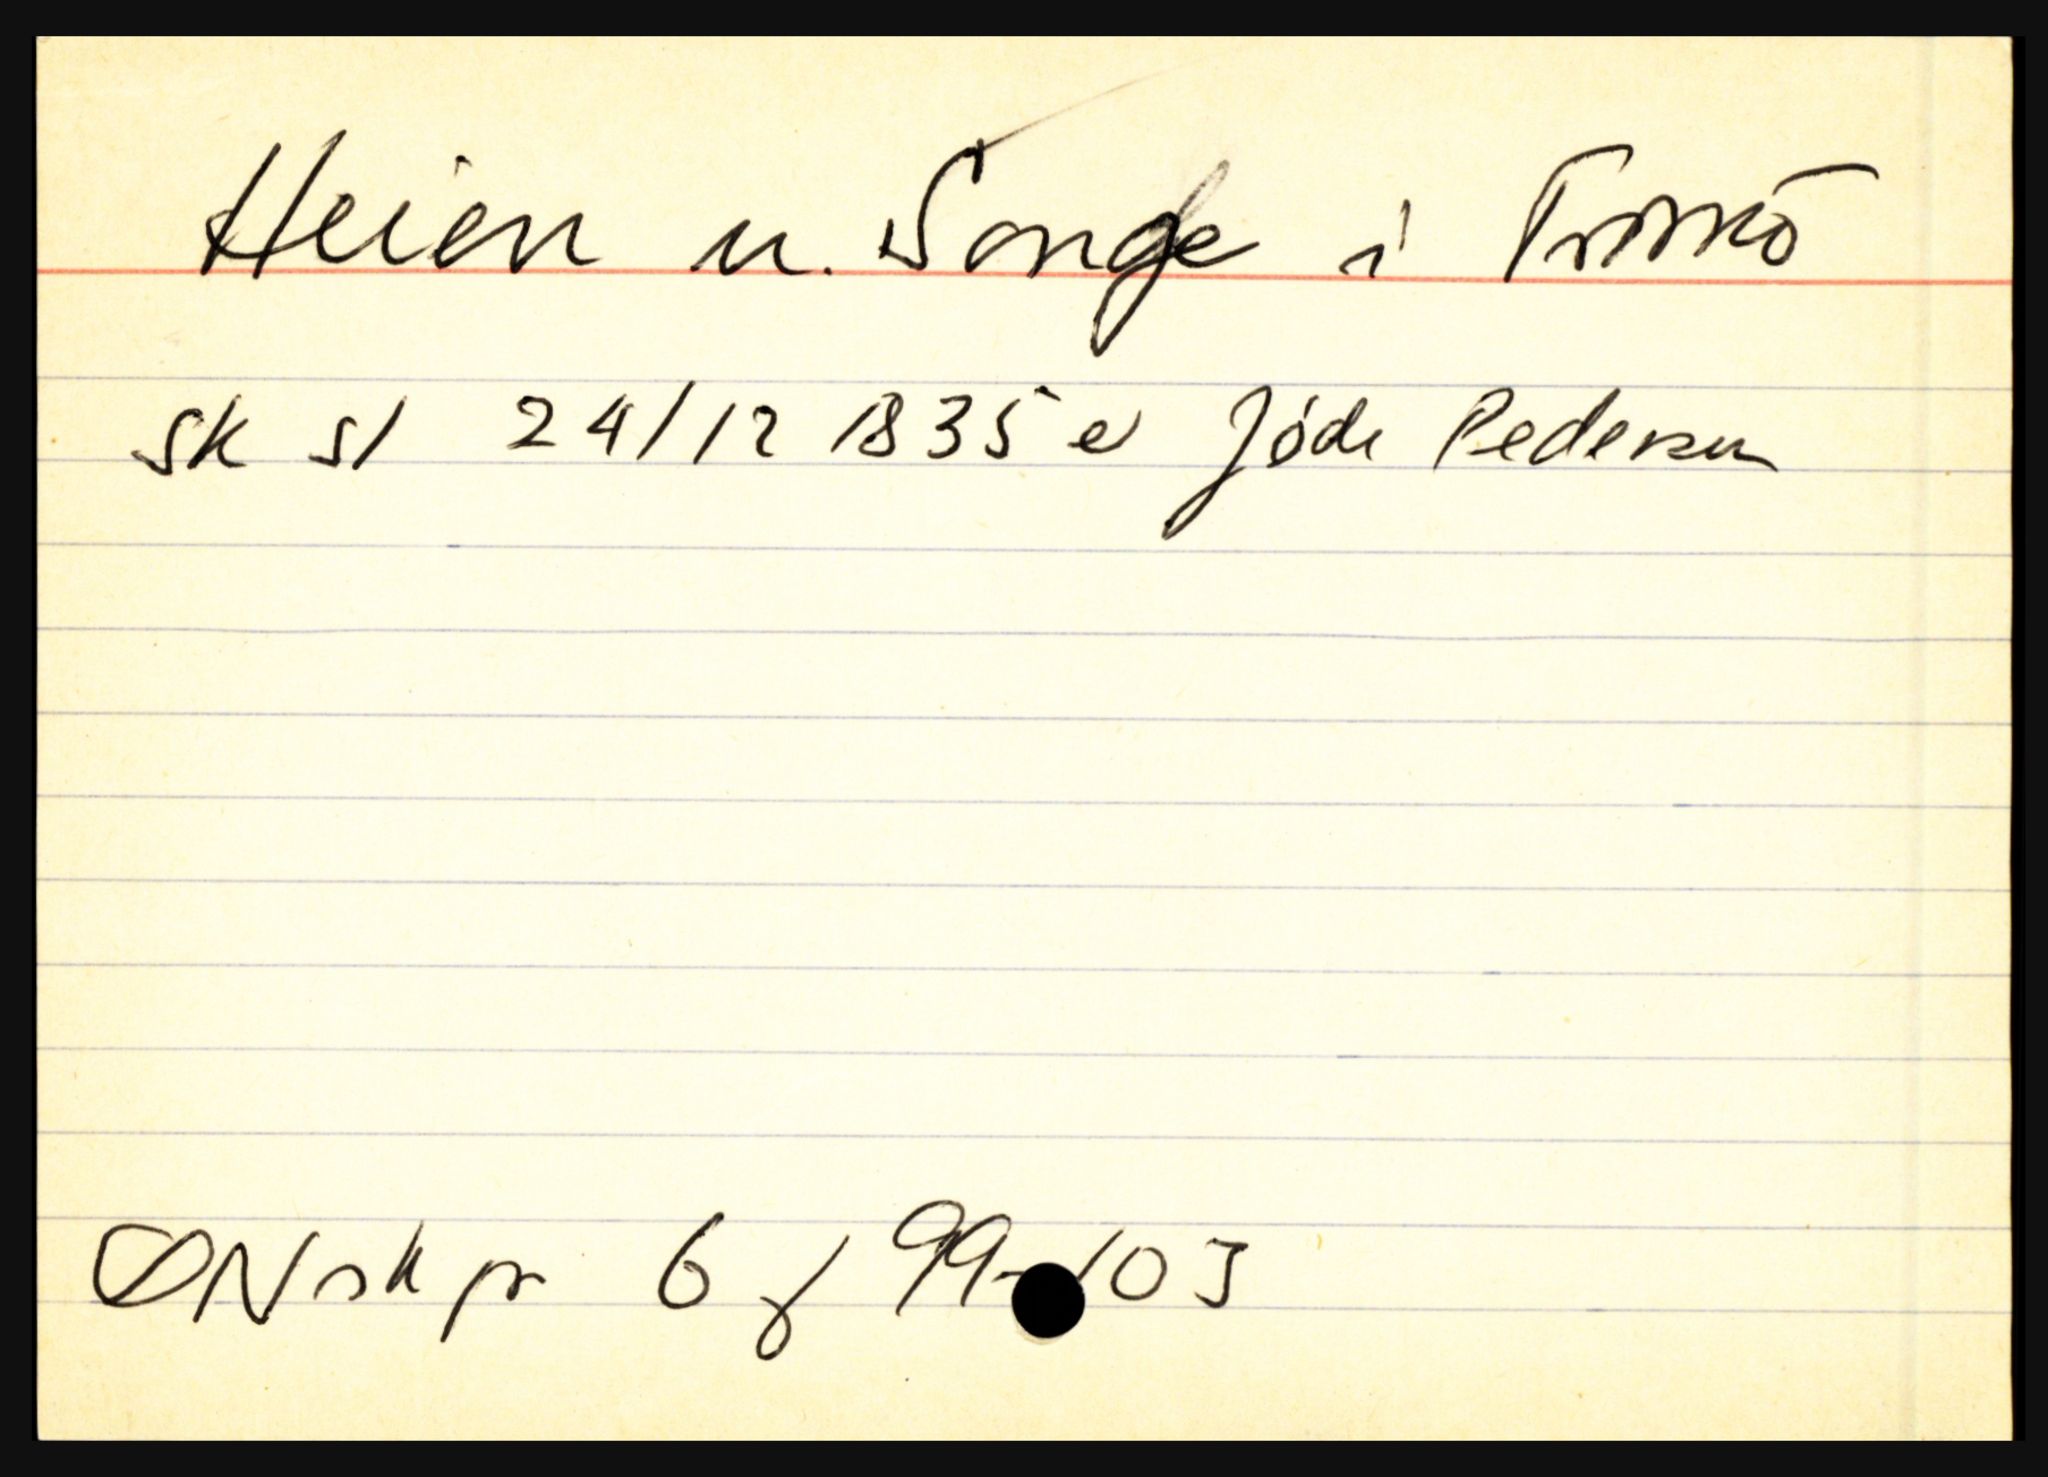 Heien u. Songe i Tromø
sk sl 24/12 1835 e Jøde Pedersen
ØN sk pr 6 f 99-103